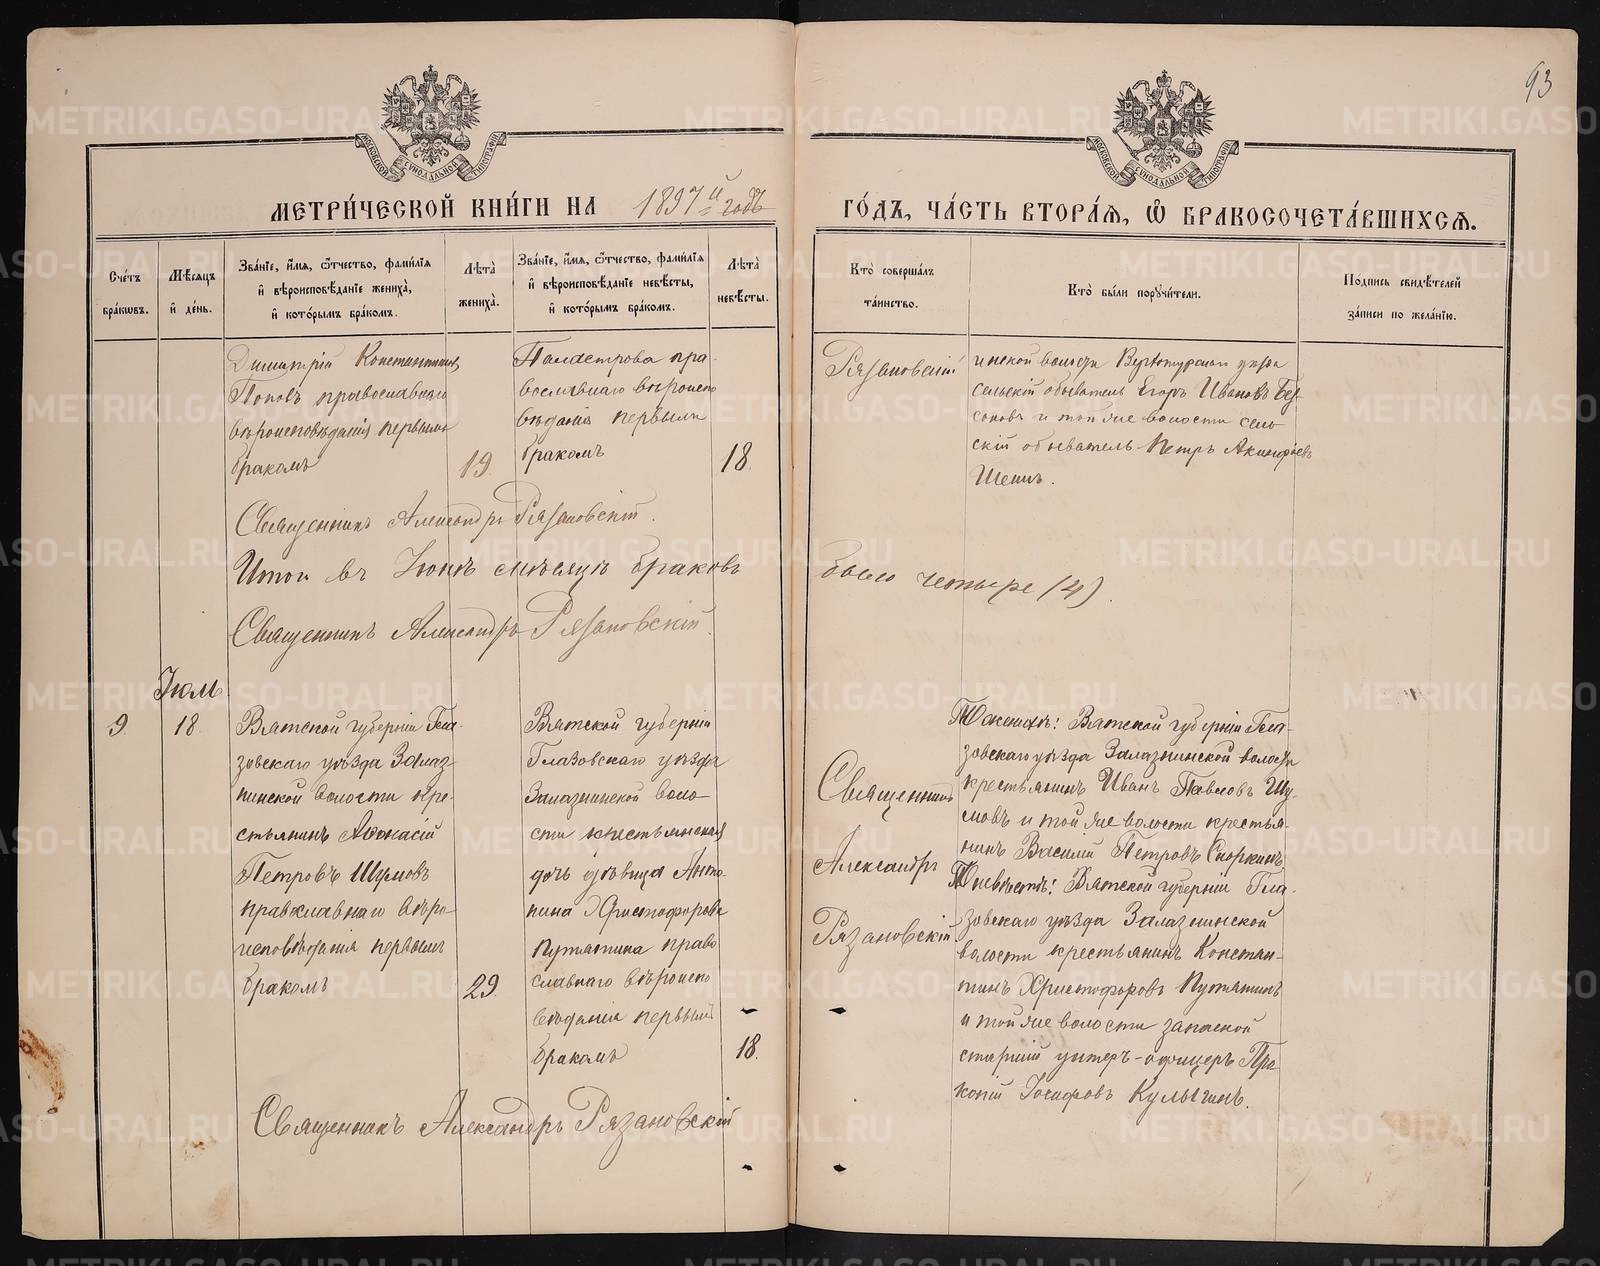 93
МОСКОВСКОЙ СУНОДАЛЬНОЙ ТИПОГРАФІИ
МОСКОВСКОЙ СУНОДАЛЬНОЙ ТИПОГРАФІИ
МЕТРИ́ЧЕСКОЙ КНИ́ГИ НА 1897й годъ
ГО́ДЪ, ЧА́СТЬ ВТОРА́Ѧ, Ѽ БРАКОСОЧЕТА́ВШИХСѦ.
Сче́тъ бра́кѡвъ.
Мѣ́сѧцъ и҆ де́нь.
Зва́нїе, и҆́мѧ, ѻ҆́тчество, фами́лїѧ и҆ вѣроисповѣ́данїе жениха̀, и҆ кото́рымъ бра́комъ.
Лѣта̀ жениха̀.
Зва́нїе, и҆́мѧ, ѻ҆́тчество, фами́лїѧ и҆ вѣроисповѣ́данїе невѣ́сты, и҆ кото́рымъ бра́комъ.
Лѣта̀ невѣ́сты.
Кто̀ соверша́лъ та́инство.
Кто̀ бы́ли порꙋчи́тели.
По́дпись свидѣ́телей за́писи по жела́нїю.
Димитрій Константиновъ
Поповъ православнаго
вѣроисповѣданія первымъ
бракомъ
19
православнаго вѣроиспо
вѣданія первымъ
бракомъ
18.
Рязановскій
инской волости Верхотурскаго уѣзда
сельскій обыватель Егоръ Ивановъ Бес-
соновъ и той же волости сель
скій обыватель Петръ Акинфіевъ
Шеинъ.
Священникъ Александръ Рязановскій.
Итого въ Іюнѣ мѣсяцѣ браковъ
было четыре (4).
Священникъ Александръ Рязановскій.
Іюль
9.
18.
Вятской губерніи Гла-
зовскаго уѣзда Залаз
нинской волости кре-
стьянинъ Аѳонасій
Петровъ Шумовъ
православнаго вѣро-
исповѣданія первымъ
бракомъ
29.
Вятской губерніи
Глазовскаго уѣзда
Залазнинской воло-
сти крестьянская
дочь дѣвица Анто-
нина Христофорова
Путятина право
славнаго вѣроиспо
вѣданія первымъ
бракомъ
18.
Священникъ
Александръ
Рязановскій
По женихѣ: Вятской губерніи Гла-
зовскаго уѣзда Залазнинской волости
крестьянинъ Иванъ Павловъ Шу-
мовъ и той же волости крестья-
нинъ Василій Петровъ Споркинъ
По невѣстѣ: Вятской губерніи Гла-
зовскаго уѣзда Залазнинской
волости крестьянинъ Констан-
тинъ Христофоровъ Путятинъ
и той же волости запасной
старшій унтеръ-офицеръ Про
копій Іосифовъ Кулыгинъ.
Священникъ Александръ Рязановскій
METRIKI.GASO-URAL.RU